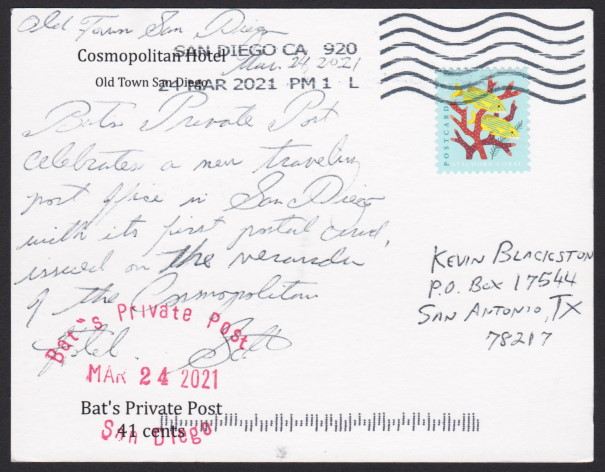 Old Town San Diego
Cosmopolitan Hotel
SAN DIEGO CA 920
Mar. 24, 2021
Old Town San Diego
24 MAR 2021 PM 1 L
Bat's Private Post
celebrates a new traveling
post office in San Diego
with its first postal card,
issued on the veranda
of the Cosmopolitan
Hotel. Scott
POSTCARD
KEVIN BLACKSTON
P.O. BOX 17544
SAN ANTONIO, TX
78217
Bat's Private Post
MAR 24 2021
San Diego
Bat's Private Post
41 cents